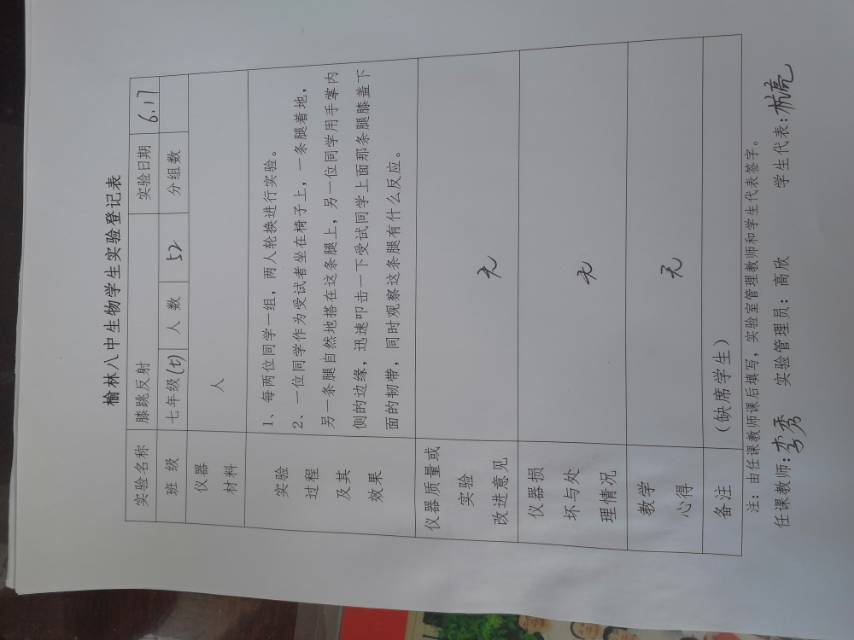 榆林八中生物学生实验登记表
实验名称 膝跳反射 实验日期 6.17
班 级 七年级(七) 人 数 52 分组数
仪器
材料
人
实验
过程
及其
效果
1、每两位同学一组，两人轮换进行实验。
2、一位同学作为受试者坐在椅子上，一条腿着地，
另一条腿自然地搭在这条腿上，另一位同学用手掌内
侧的边缘，迅速叩击一下受试同学上面那条腿膝盖下
面的韧带，同时观察这条腿有什么反应。
仪器质量或
实验
改进意见
无
仪器损
坏与处
理情况
无
教学
心得
无
备注 （缺席学生）
注：由任课教师课后填写，实验室管理教师和学生代表签字。
任课教师：李秀 实验管理员：高欣 学生代表：杭亮